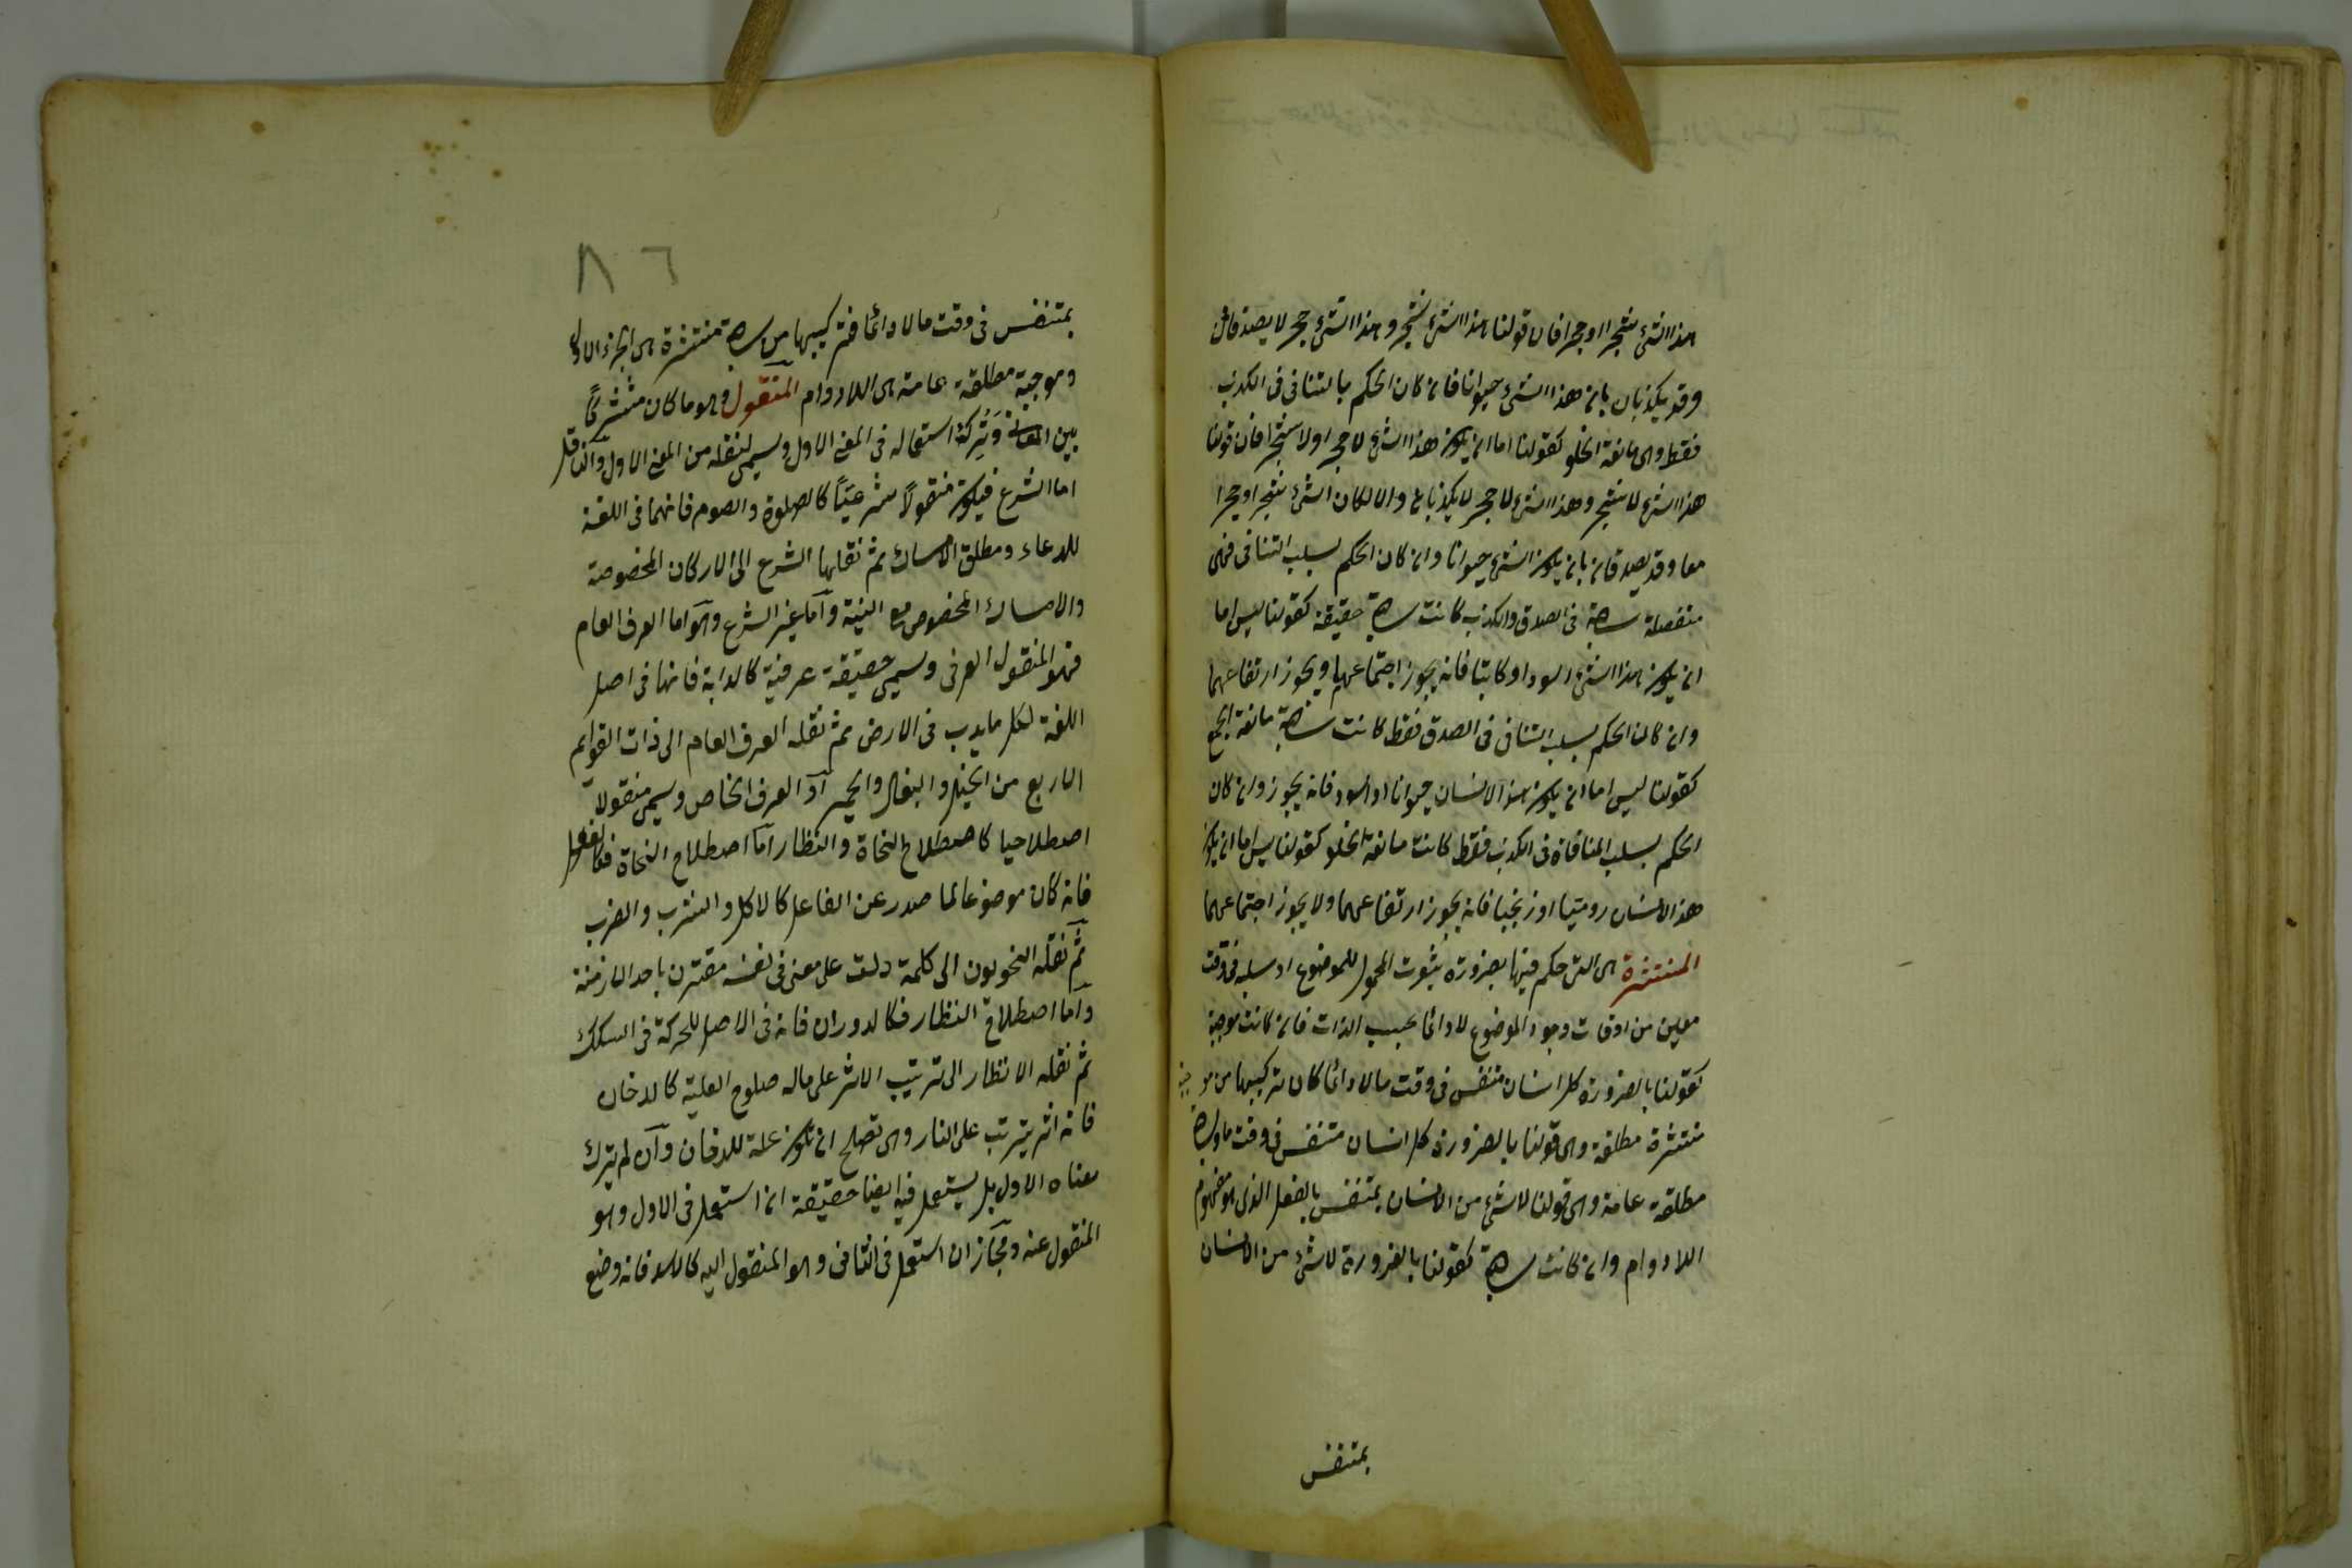 هذا الشئ شجرا او حجرا فان قولنا هذا الشئ شجر وهذا الشئ حجر لا يصدقان
وقد يكذبان بان هذا الشئ حيوانا فان كان الحكم بالتنافى فى الكذب
فقط وهى مانعة الخلو كقولنا اما ان يكون هذا الشئ لا حجرا ولا شجرا فان قولنا
هذا الشئ لا شجر وهذا الشئ لا حجر لا يكذبان والا لكان الشئ شجرا وحجرا
معا وقد يصدقان بان يكون الشئ حيوانا وان كان الحكم بسلب التنافى فهى
منفصلة سالبة فى الصدق والكذب كانت سالبة حقيقة كقولنا ليس اما
ان يكون هذا الشئ اسود او كاتبا فانه يجوز اجتماعهما ويجوز ارتفاعهما
وان كان الحكم بسلب التنافى فى الصدق فقط كانت سالبة مانعة الجمع
كقولنا ليس اما ان يكون هذا الانسان حيوانا او اسود فانه يجوز وان كان
الحكم بسلب المنافاة فى الكذب فقط كانت مانعة الخلو كقولنا ليس اما ان يكون
هذا الانسان روميا او زنجيا فانه يجوز ارتفاعهما ولا يجوز اجتماعهما
المنتشرة هى التى حكم فيها بضرورة ثبوت المحمول للموضوع او سلبه فى وقت
معين من اوقات وجود الموضوع لا دائما بحسب الذات فان كانت موجبة
كقولنا بالضرورة كل انسان متنفس فى وقت ما لا دائما كان تركيبها من موجبة
منتشرة مطلقة وهى قولنا بالضرورة كل انسان متنفس فى وقت ما وسالبة
مطلقة عامة وهى قولنا لا شئ من الانسان بمتنفس بالفعل الذى هو مفهوم
اللادوام وان كانت سالبة كقولنا بالضرورة لا شئ من الانسان
بمتنفس
٨٦
بمتنفس فى وقت ما لا دائما فتركيبها من سالبة منتشرة هى الجزء الاول
وموجبة مطلقة عامة هى اللادوام المنقول وهو ما كان مشتركا
بين المعانى وترك استعماله فى المعنى الاول وسمى لنقله من المعنى الاول والناقل
اما الشرع فيكون منقولا شرعيا كالصلوة والصوم فانهما فى اللغة
للدعاء ومطلق الامساك ثم نقلهما الشرع الى الاركان المخصوصة
والامساك المخصوص مع النية واما غير الشرع وهو اما العرف العام
فهو المنقول العرفى وسمى حقيقة عرفية كالدابة فانها فى اصل
اللغة لكل ما يدب فى الارض ثم نقله العرف العام الى ذات القوائم
الاربع من الخيل والبغال والحمير او العرف الخاص وسمى منقولا
اصطلاحيا كاصطلاح النحاة والنظار اما اصطلاح النحاة فكالفعل
فانه كان موضوعا لما صدر عن الفاعل كالاكل والشرب والضرب
ثم نقله النحويون الى كلمة دلت على معنى فى نفسه مقترن باحد الازمنة
واما اصطلاح النظار فكالدوران فانه فى الاصل للحركة فى السكك
ثم نقله الانظار الى ترتيب الاثر على ماله صلوح العلية كالدخان
فانه اثر يترتب على النار وهى تصلح ان تكون علة للدخان وان لم يترك
معناه الاول بل يستعمل فيه ايضا حقيقة ان استعمل فى الاول وهو
المنقول عنه ومجاز ان استعمل فى الثانى وهو المنقول اليه كالاسد فانه وضع